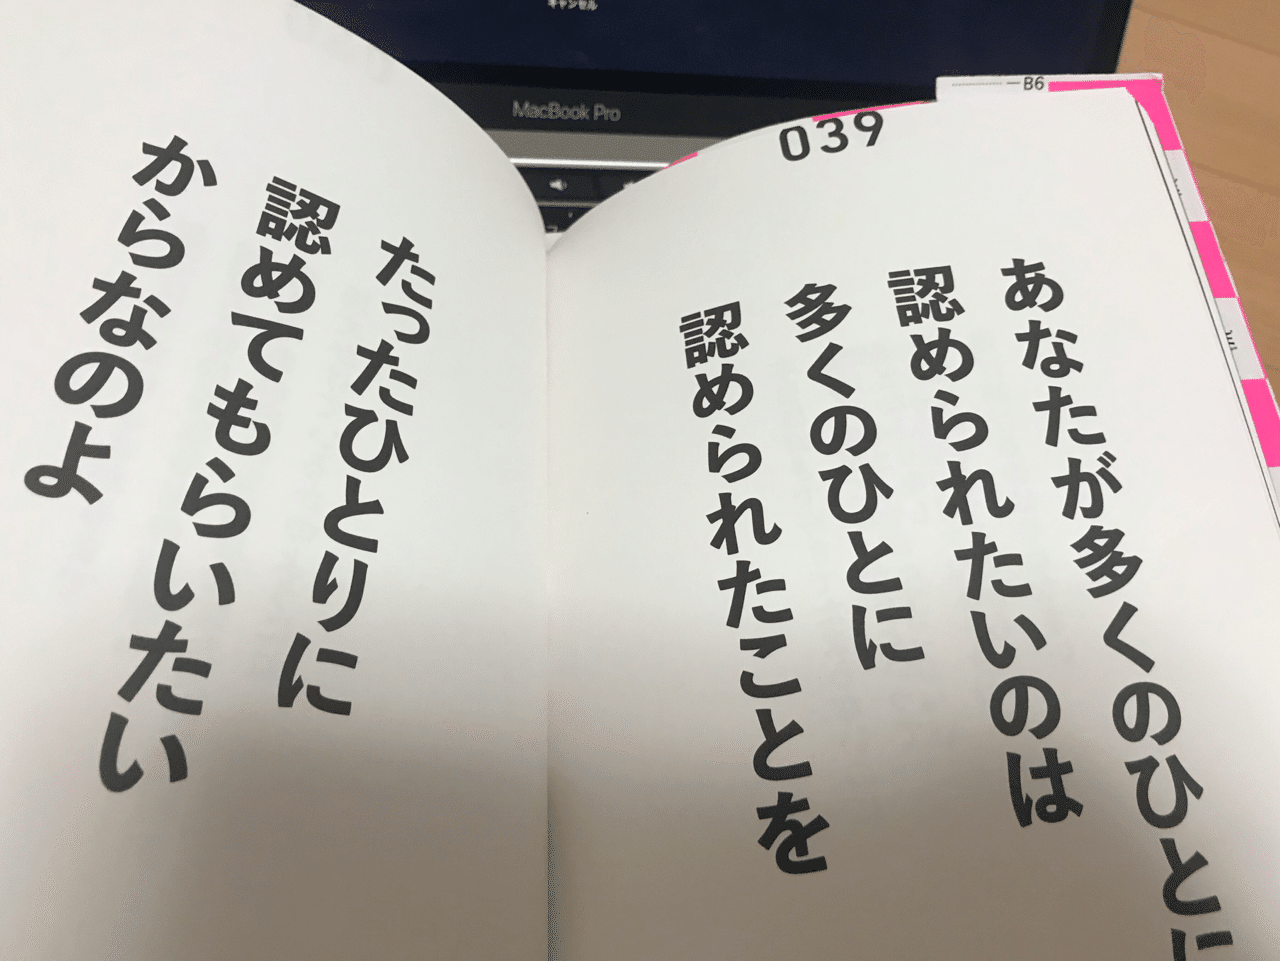 キャンセル
MacBook Pro
B6
039
あなたが多くのひとに
認められたいのは
多くのひとに
認められたことを
たったひとりに
認めてもらいたい
からなのよ